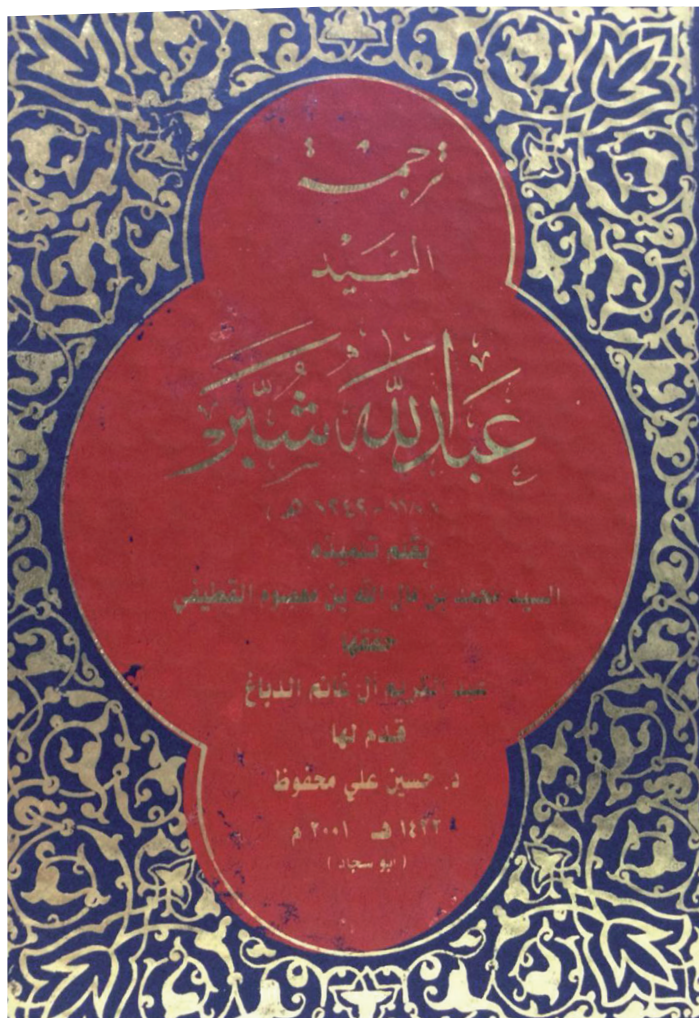 ترجمة
السَّيِّد
عَبدُ اللّه شُبَّر
بقلم تلميذه
السيد محمد بن مال الله بن معصوم القطيفي
حققها
عبد الكريم آل غانم الدباغ
قدم لها
د. حسين علي محفوظ
١٤٢٢ هـ ٢٠٠١ م
( ابو سجاد )